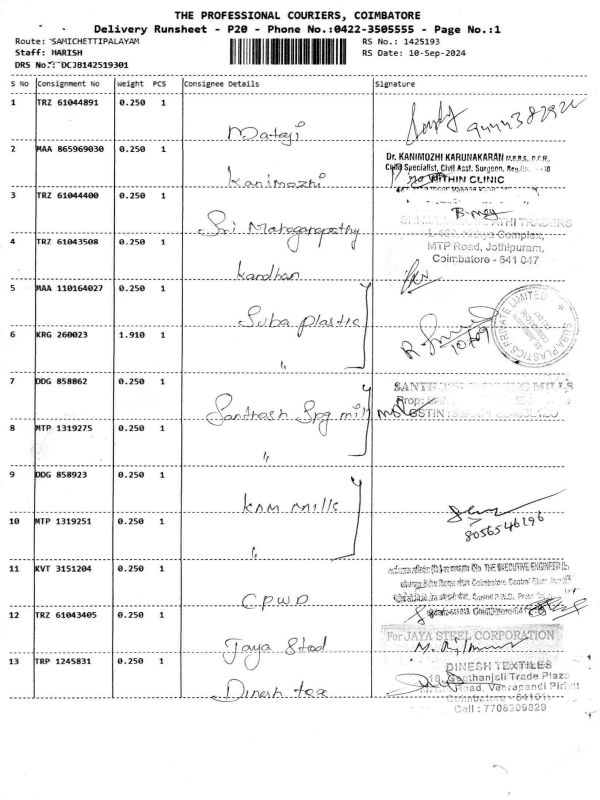 THE PROFESSIONAL COURIERS, COIMBATORE
Delivery Runsheet - P20 - Phone No.:0422-3505555 - Page No.:1
Route: SAMICHETTIPALAYAM
RS No.: 1425193
Staff: HARISH
RS Date: 10-Sep-2024
DRS No.: DCJB142519301
S No Consignment No Weight PCS Consignee Details Signature
1 TRZ 61044891 0.250 1 Mataji
2 MAA 865969030 0.250 1 Kanimozhi
Dr. KANIMOZHI KARUNAKARAN M.B.B.S., D.C.H.,
Child Specialist, Civil Asst. Surgeon,
WITHIN CLINIC
3 TRZ 61044400 0.250 1 Sri Mahaganapathy
TRADERS
Complex,
MTP Road, Jothipuram,
Coimbatore - 641 047
4 TRZ 61043508 0.250 1 Kandhan
5 MAA 110164027 0.250 1 Suba plastic
SUBA PLASTICS PRIVATE LIMITED
10/09
6 KRG 260023 1.910 1 "
7 DDG 858862 0.250 1 Santhosh Spg mill
MILLS
8 MTP 1319275 0.250 1 "
9 DDG 858923 0.250 1 KNM Mills
8056546196
10 MTP 1319251 0.250 1 "
11 KVT 3151204 0.250 1 C.P.W.D
THE EXECUTIVE ENGINEER
Coimbatore Central
12 TRZ 61043405 0.250 1 Jaya Steel
For JAYA STEEL CORPORATION
13 TRP 1245831 0.250 1 Dinesh tex
DINESH TEXTILES
18, Geethanjali Trade Plaza
Road, Veerapandi Pirivu
Coimbatore
Cell : 7708209829